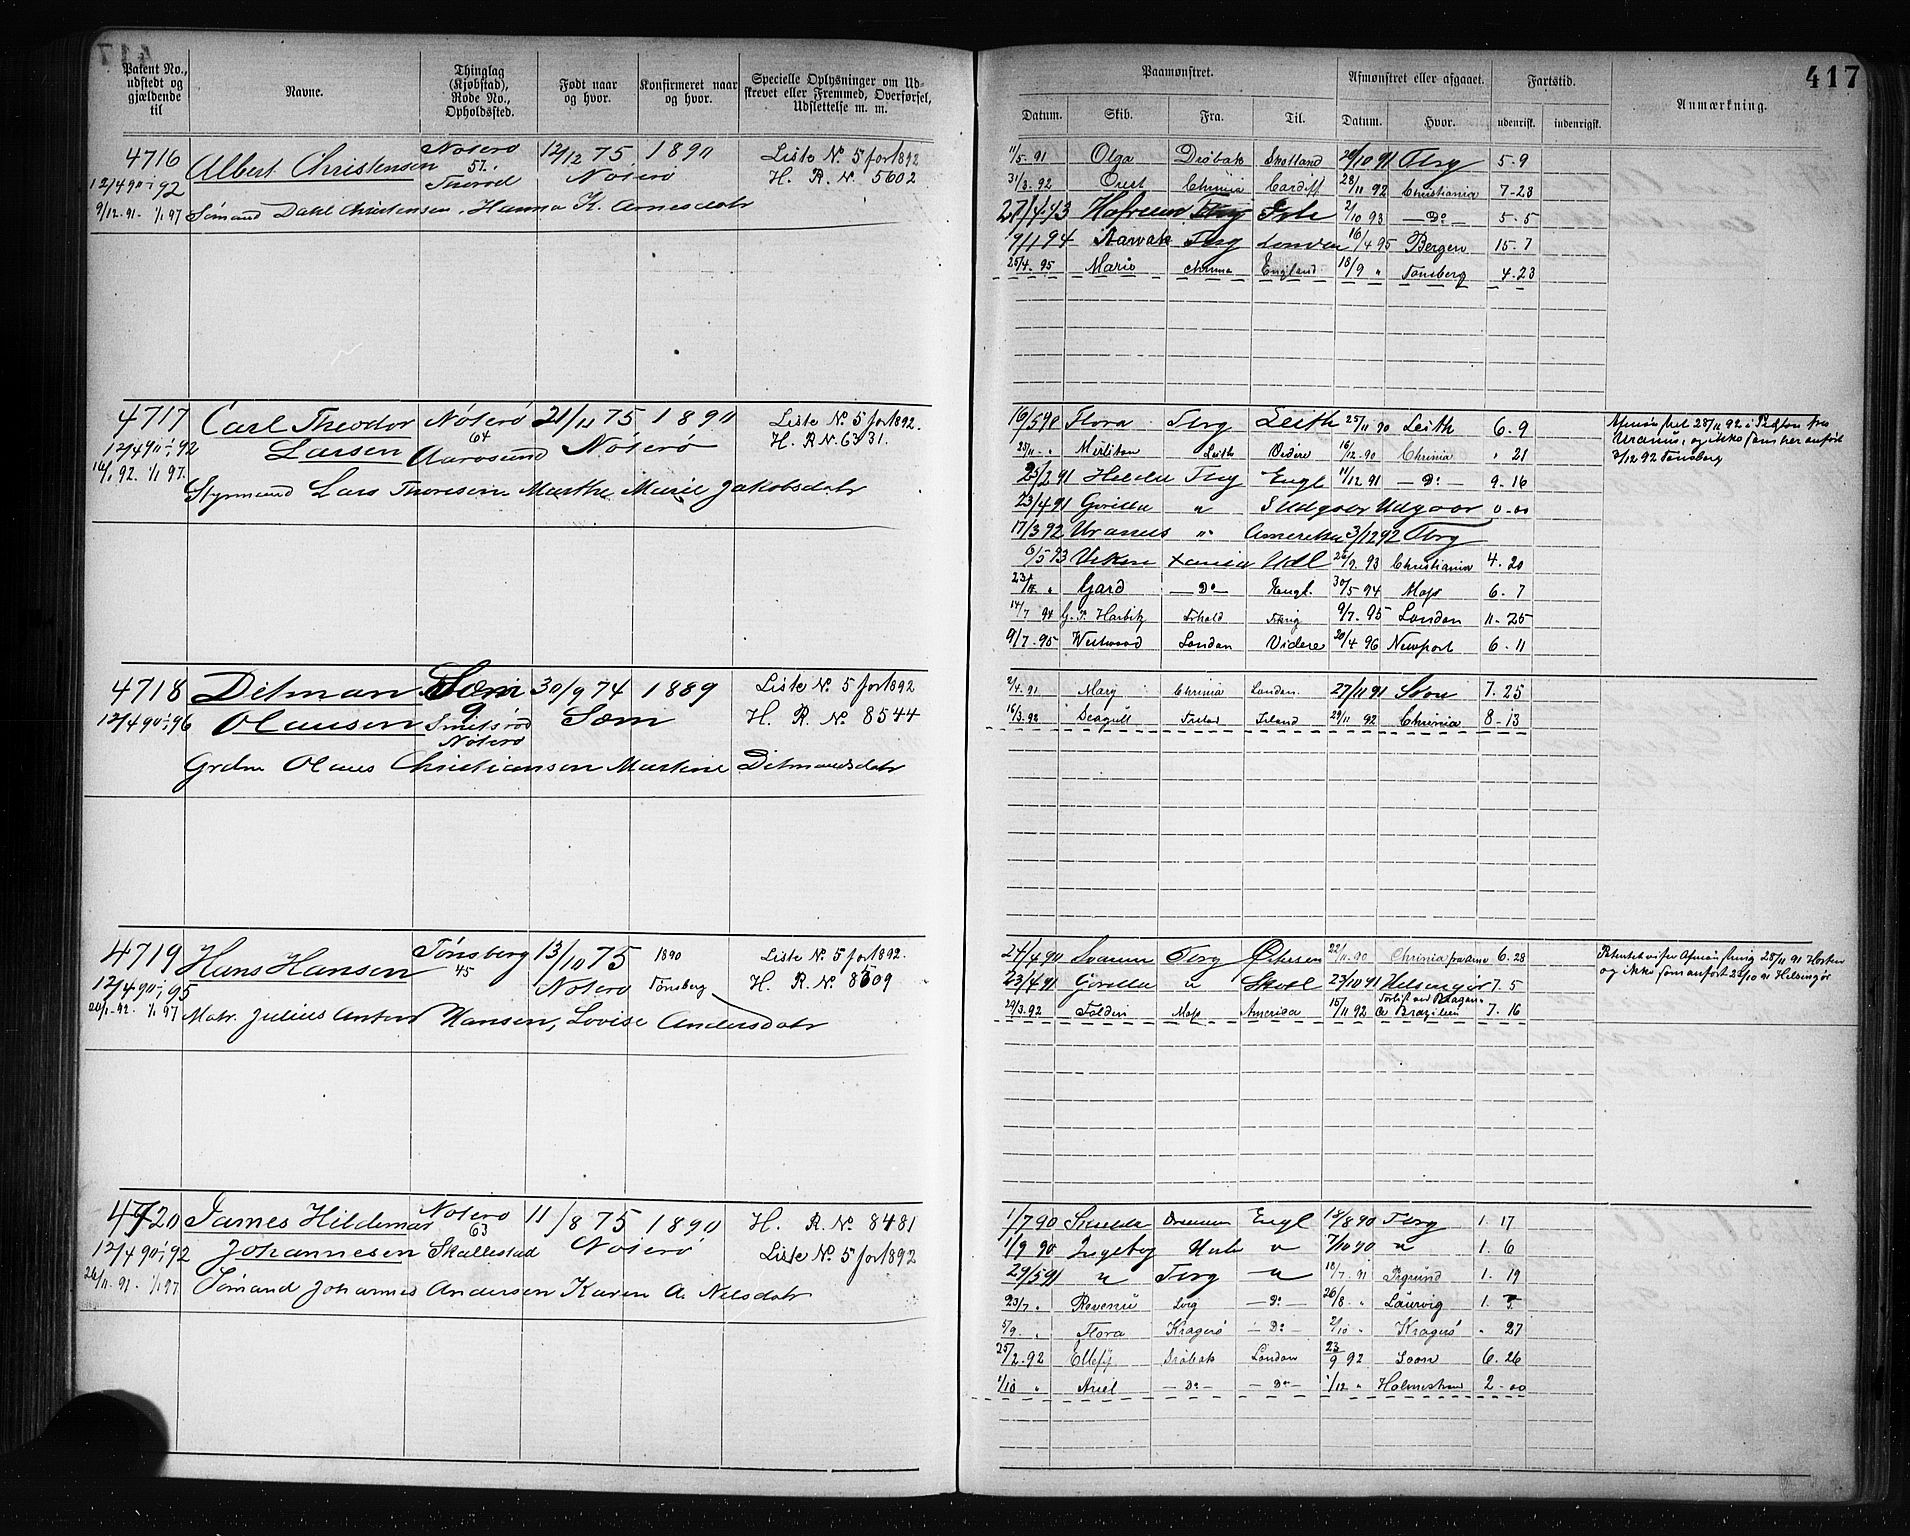 417
Patent No., udstedt og gjældende til
Navne.
Thinglag (Kjøbstad), Rode No., Opholdssted.
Født naar og hvor.
Konfirmeret naar og hvor.
Specielle Oplysninger om Udskrevet eller Fremmed, Overførsel, Udslettelse m. m.
Paamønstret.
Afmønstret eller afgaaet.
Fartstid.
Anmærkning.
Datum.
Skib.
Fra.
Til.
Datum.
Hvor.
udenrigsk.
indenrigsk.
4716 Albert Christensen Nøterø 12/12 75 1890 Liste No. 5 for 1892
12/4 90 - 1/1 92 57. Thorød Nøterø H. R. No. 5602
9/12 .91. 1/1 97 Sømand Dahl Christensen, Hanna K. Arnesdatr
11/5 91 Olga Drøbak Skotland 29/10 91 Tbrg 5 - 9
31/3 . 92 Orest Chrinia Cardiff 28/11 92 Christiania 7 - 23
2/10 93 — Do — 5 - 5
9/11 94 Narvak Tbrg London 16/4 95 Bergen 15 - 7
25/4 . 95 Mario Chrinia England 18/9 " Tønsberg 4 - 23
4717 Carl Theodor Nøterø 21/11 75 1890 Liste No. 5 for 1892.
12/4 90 - 1/1 92 Larsen 64 Aarøsund Nøterø H. R. N. 6331.
16/1 92. 1/1 97. Styrmand Lars Thoresen Marthe Marie Jakobsdatr
16/5 90 Flora Tbrg Leith 25/11 90 Leith 6 - 9
25/11 - " Leith Videre 16/12 . 90 Chrinia " 21
25/2 91 Tbrg Engl 11/12 91 — Do — 9 - 16
23/4 91 Gorilla " Sludgaor Udgaar 0 - 00
17/3 92 Uranus " Amerika 3/12 92 Tbrg
6/5 93 Xania Udl 26/9 93 Christiania 4 - 20
Gard — Do — Engl. 30/5 94 Moss 6 - 7
14/7 94 G. P. Harbitz 9/7 . 95 London 11 - 25
9/7 . 95 Westwood London Videre 20/4 96 Newport 6 - 11
28/11 92 i
Uranus, og ikke som her anført
3/12 92 Tønsberg
4718 Ditman Sæm 30/9 74 1889 Liste No. 5 for 1892
12/4 90 - 1/1 96 Olausen 9 Smidsrød Sæm H. R. No. 8544
Nøterø
Grdm Olaus Christiansen Martine Ditmandsdatr
2/4 . 91 Mary Chrinia London. 27/11 91 Soon 7 . 25
16/3 . 92 Seagull Island 29/11 92 Chrinia 8 - 13
4719 Hans Hansen Tønsberg 13/10 75 1890 Liste No. 5 for 1892.
12/4 90 - 1/1 95 45 Nøterø Tønsberg H. R. No. 8509
20/1 - 92. 1/1 97 Matr. Julius Anton Hansen, Lovise Andersdatr
24/4 90 Tbrg 22/11 - 90 Chrinia 6 - 28
23/4 91 Gorilla " Skotl 29/10 91 Helsingør 7. 5
29/3 . 92 Foldin Moss Amerika 15/11 92 Brazilien 7 - 16
Patentet viser Afmønstring 28/11 91 Horten
og ikke som anført 29/10 91 Helsingør
4720 James Hildemar Nøterø 11/8 75 1890 H. R. No. 8481
12/4 90 - 1/1 92 Johannesen 63 Skallestad Nøterø Liste No. 5 for 1892
26/11 . 91. 1/1 97 Sømand Johannes Andersen Karen A. Nilsdatr
1/7 90 Drammen Engl 18/8 90 Tbrg 1. 17
1/9 90 Ingeborg " 7/10 90 " 1. 6
29/5 91 " Tbrg " 18/7 . 91 Prgrund 1. 19
23/7 " Revenu — Do — 26/8 . " Laurvig 1.
5/9 . " Flora Kragerø — Do — 2/10 " Kragerø " 27
25/2 . 92 Drøbak London 23/9 92 Soon 6. 26
1/10 " Ariel — Do — — Do — 1/12 " Holmestrand 2 - 00